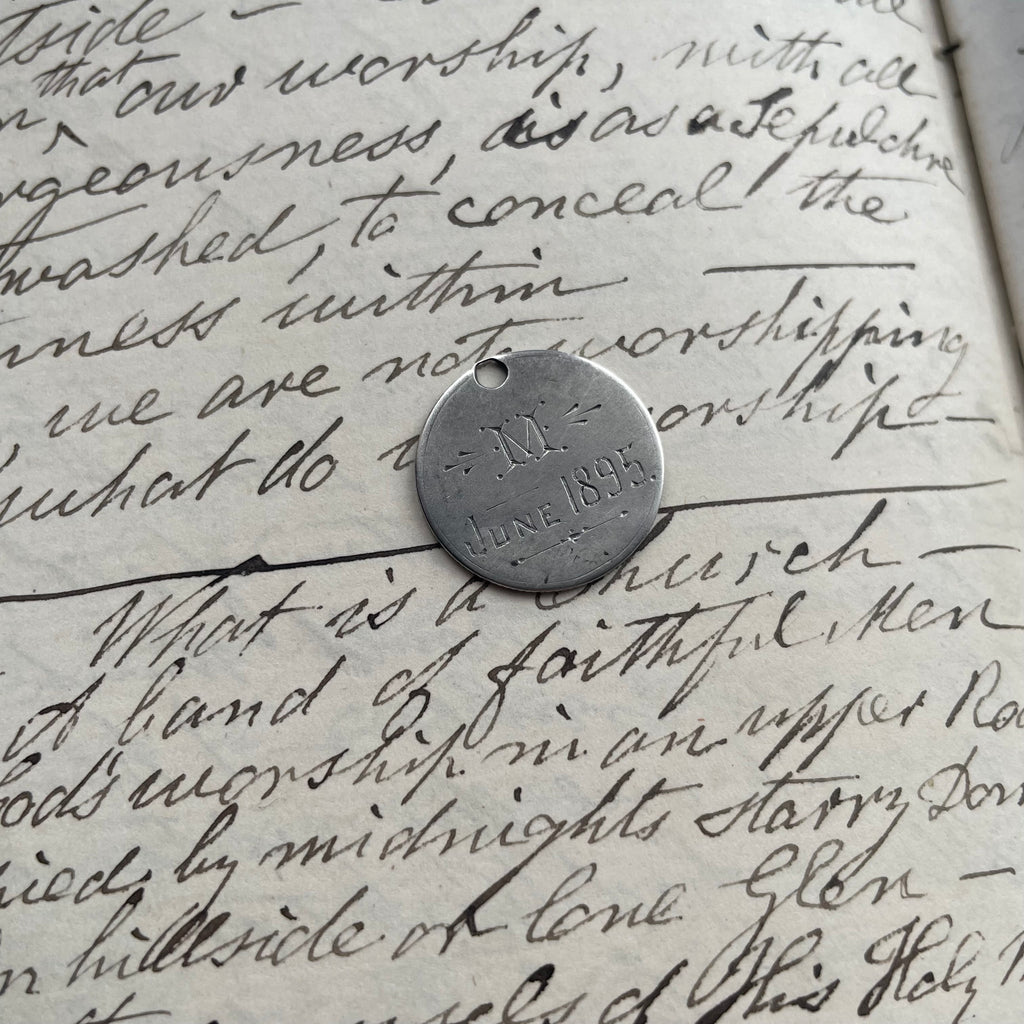 that our worship, with all
is as a Sepulchre
washed, to conceal the
within
we are not worshipping
what do
M
JUNE 1895.
What is a Church
A band of faithful Men
worship in an upper
by midnights starry
hillside or lone Glen
of His Holy